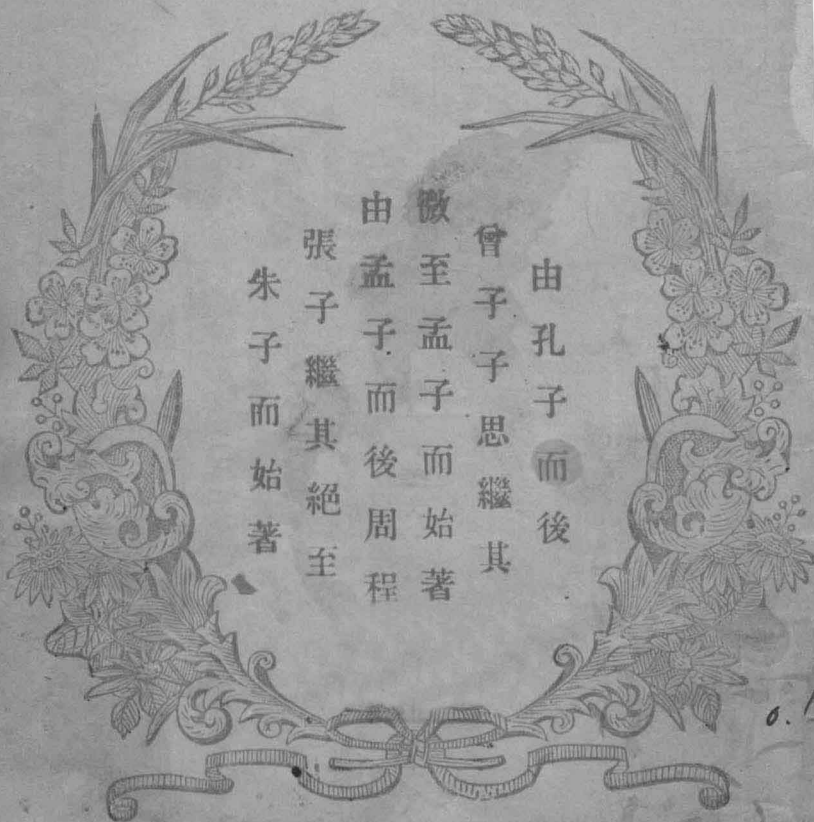 由孔子而後
曾子子思繼其
微至孟子而始著
由孟子而後周程
張子繼其絕至
朱子而始著
6.